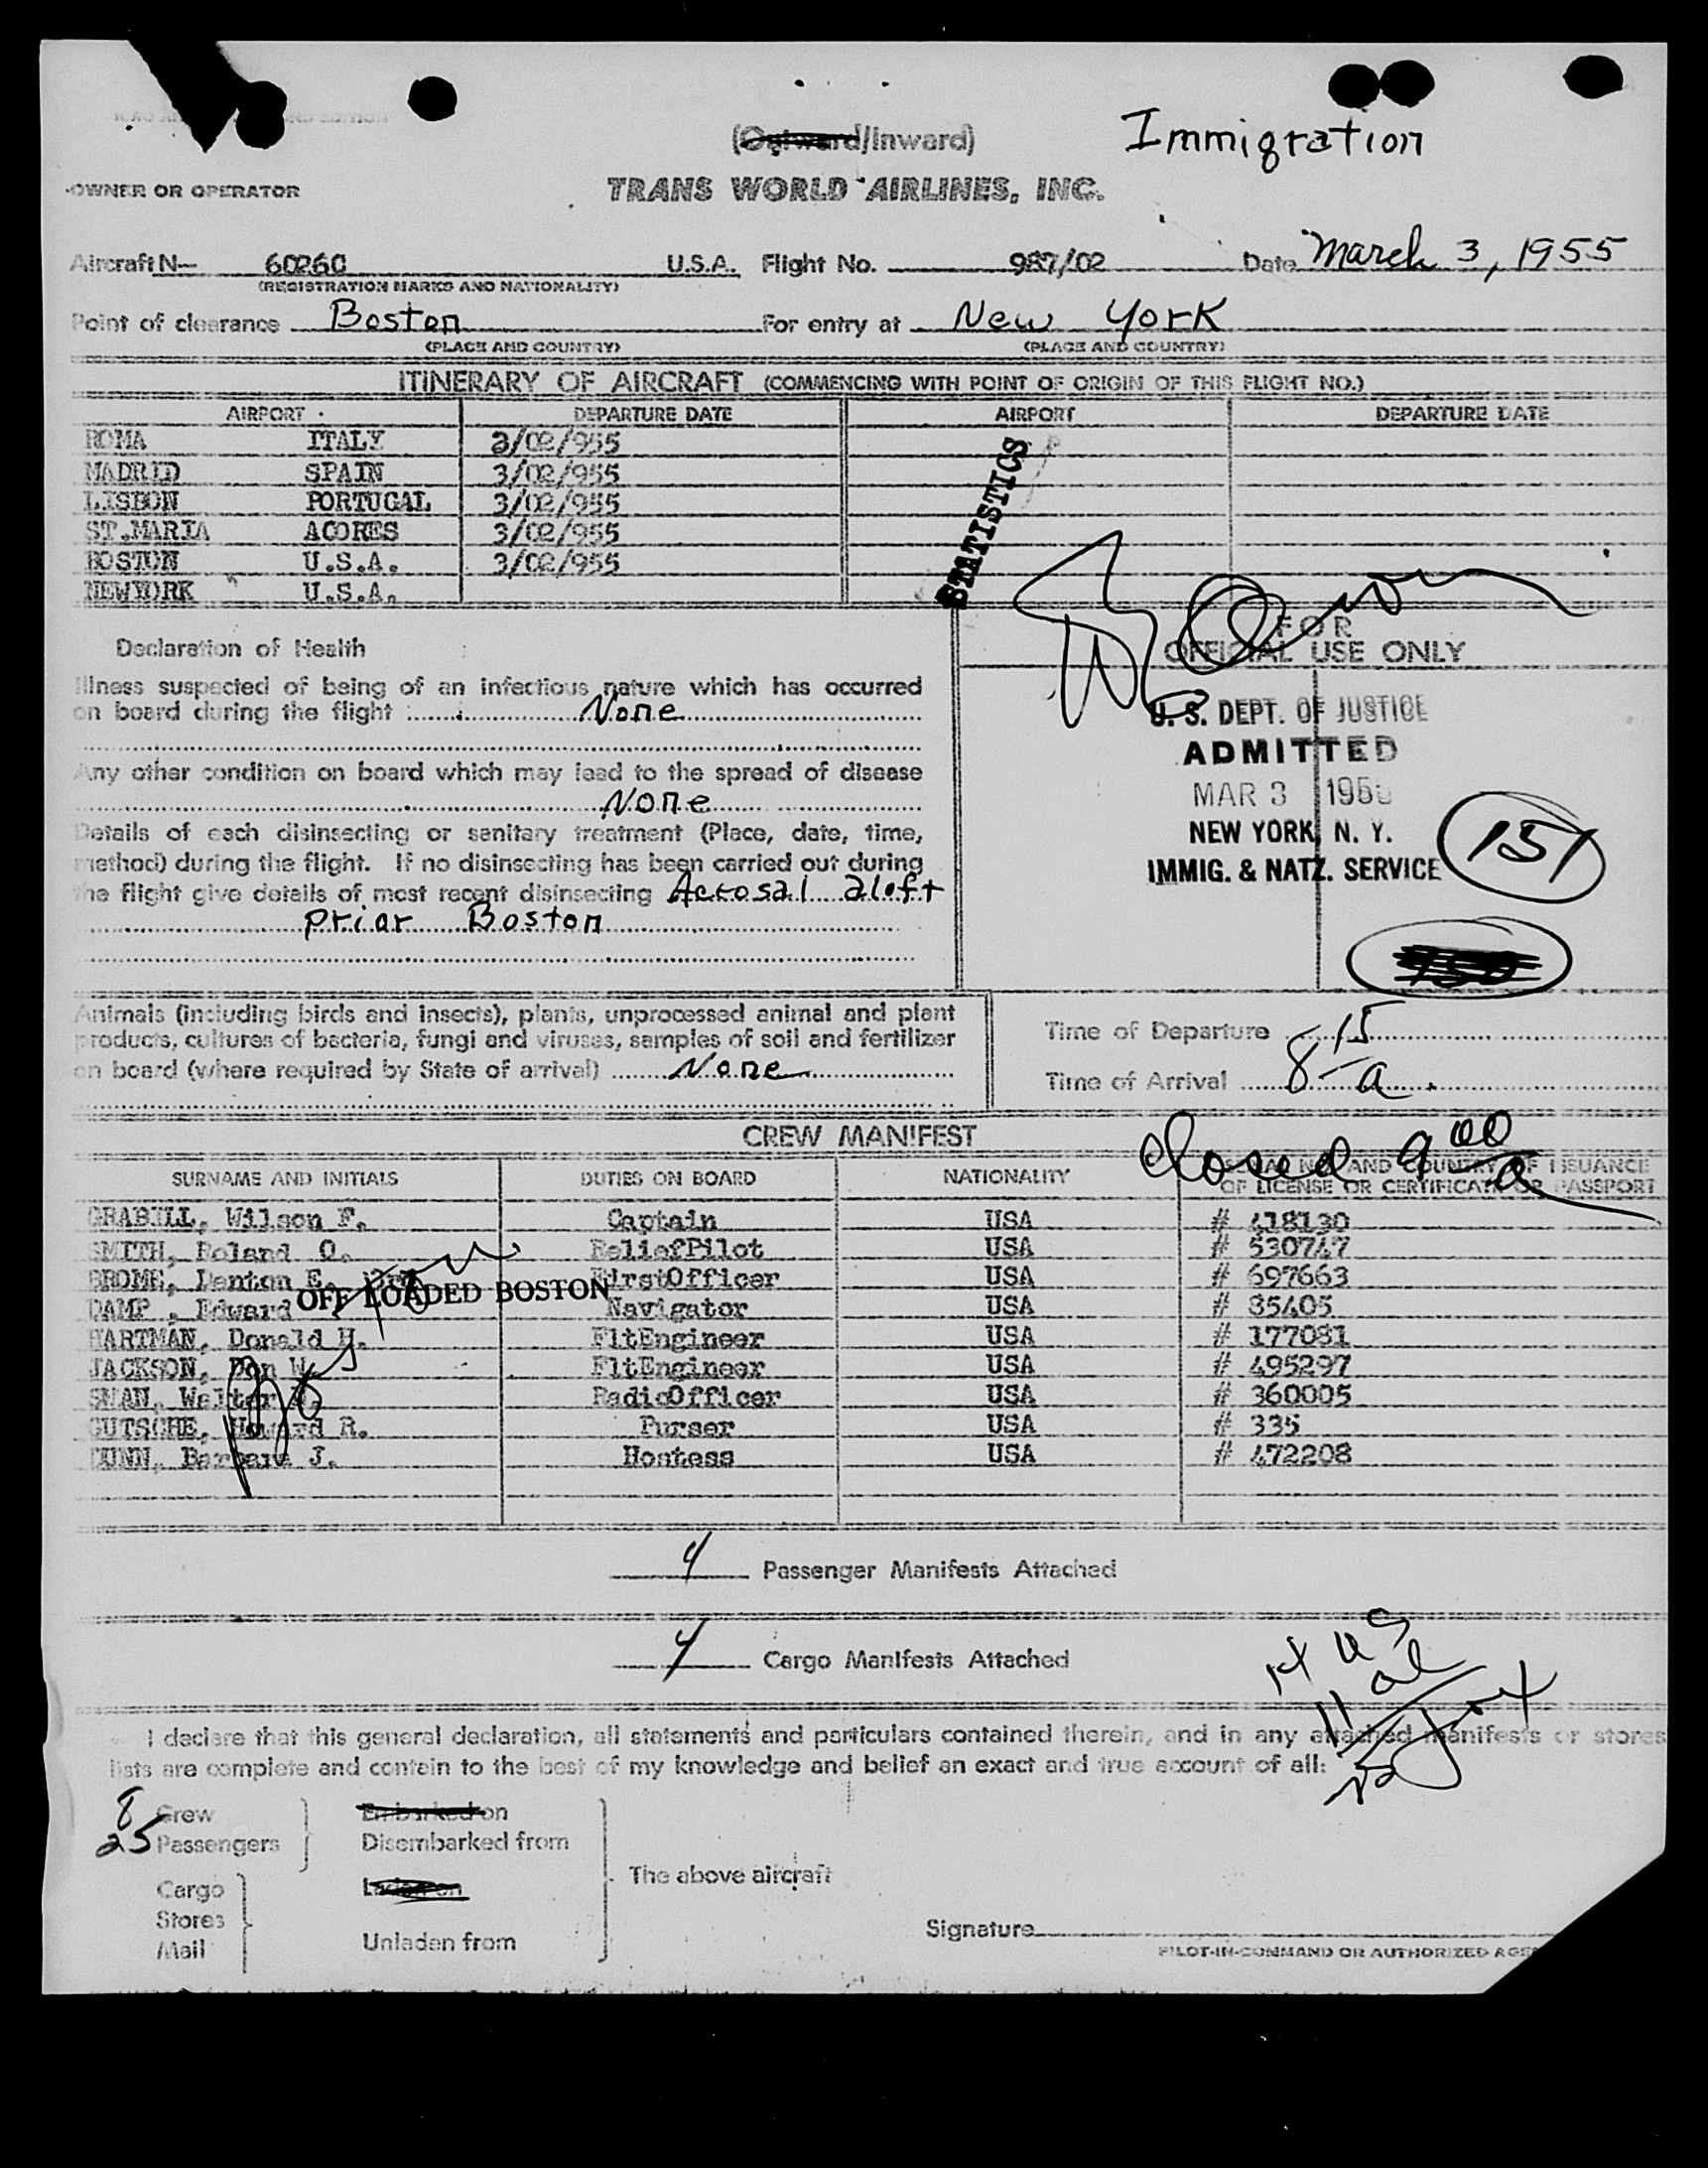 (Outward/Inward)
Immigration
OWNER OR OPERATOR
TRANS WORLD AIRLINES, INC.
Aircraft N— 6026C U.S.A. Flight No. 987/02 Date March 3, 1955
(REGISTRATION MARKS AND NATIONALITY)
Point of clearance Boston For entry at New York
(PLACE AND COUNTRY) (PLACE AND COUNTRY)
ITINERARY OF AIRCRAFT (COMMENCING WITH POINT OF ORIGIN OF THIS FLIGHT NO.)
AIRPORT DEPARTURE DATE AIRPORT DEPARTURE DATE
ROMA ITALY 3/02/955
MADRID SPAIN 3/02/955
LISBON PORTUGAL 3/02/955
ST.MARIA ACORES 3/02/955
BOSTON U.S.A. 3/02/955
NEWYORK U.S.A.
STATISTICS
Declaration of Health
Illness suspected of being of an infectious nature which has occurred
on board during the flight None
Any other condition on board which may lead to the spread of disease
None
Details of each disinsecting or sanitary treatment (Place, date, time,
method) during the flight. If no disinsecting has been carried out during
the flight give details of most recent disinsecting Aerosal aloft
prior Boston
FOR
OFFICIAL USE ONLY
U. S. DEPT. OF JUSTICE
ADMITTED
MAR 3 1955
NEW YORK, N. Y.
IMMIG. & NATZ. SERVICE
151
Animals (including birds and insects), plants, unprocessed animal and plant
products, cultures of bacteria, fungi and viruses, samples of soil and fertilizer
on board (where required by State of arrival) None
Time of Departure
Time of Arrival 8 15 a
closed 9 00 a
CREW MANIFEST
SURNAME AND INITIALS DUTIES ON BOARD NATIONALITY SERIAL NO. AND COUNTRY OF ISSUANCE
OF LICENSE OR CERTIFICATE OR PASSPORT
GRABILL, Wilson F. Captain USA # 418130
SMITH, Roland O. ReliefPilot USA # 530747
BROME, Denton E. FirstOfficer USA # 697663
OFF LOADED BOSTON
DAMP , Edward Navigator USA # 85405
HARTMAN, Donald H. FltEngineer USA # 177081
JACKSON, Don W. FltEngineer USA # 495297
SWAN, Walter RadioOfficer USA # 360005
GUTSCHE, Howard R. Purser USA # 335
DUNN, Barbara J. Hostess USA # 472208
4 Passenger Manifests Attached
4 Cargo Manifests Attached
14 US
11 al
I declare that this general declaration, all statements and particulars contained therein, and in any attached manifests or stores
lists are complete and contain to the best of my knowledge and belief an exact and true account of all:
8 Crew
25 Passengers
Embarked on
Disembarked from
Cargo
Stores
Mail
Laden on
Unladen from
The above aircraft
Signature
PILOT-IN-COMMAND OR AUTHORIZED